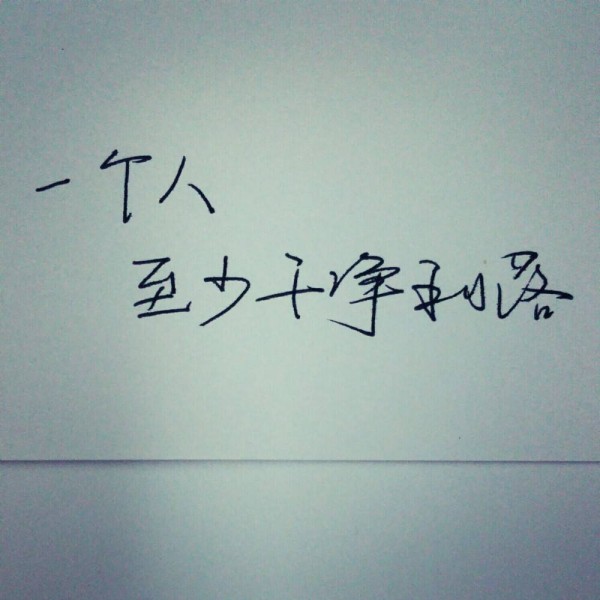 一个人
至少干净利落